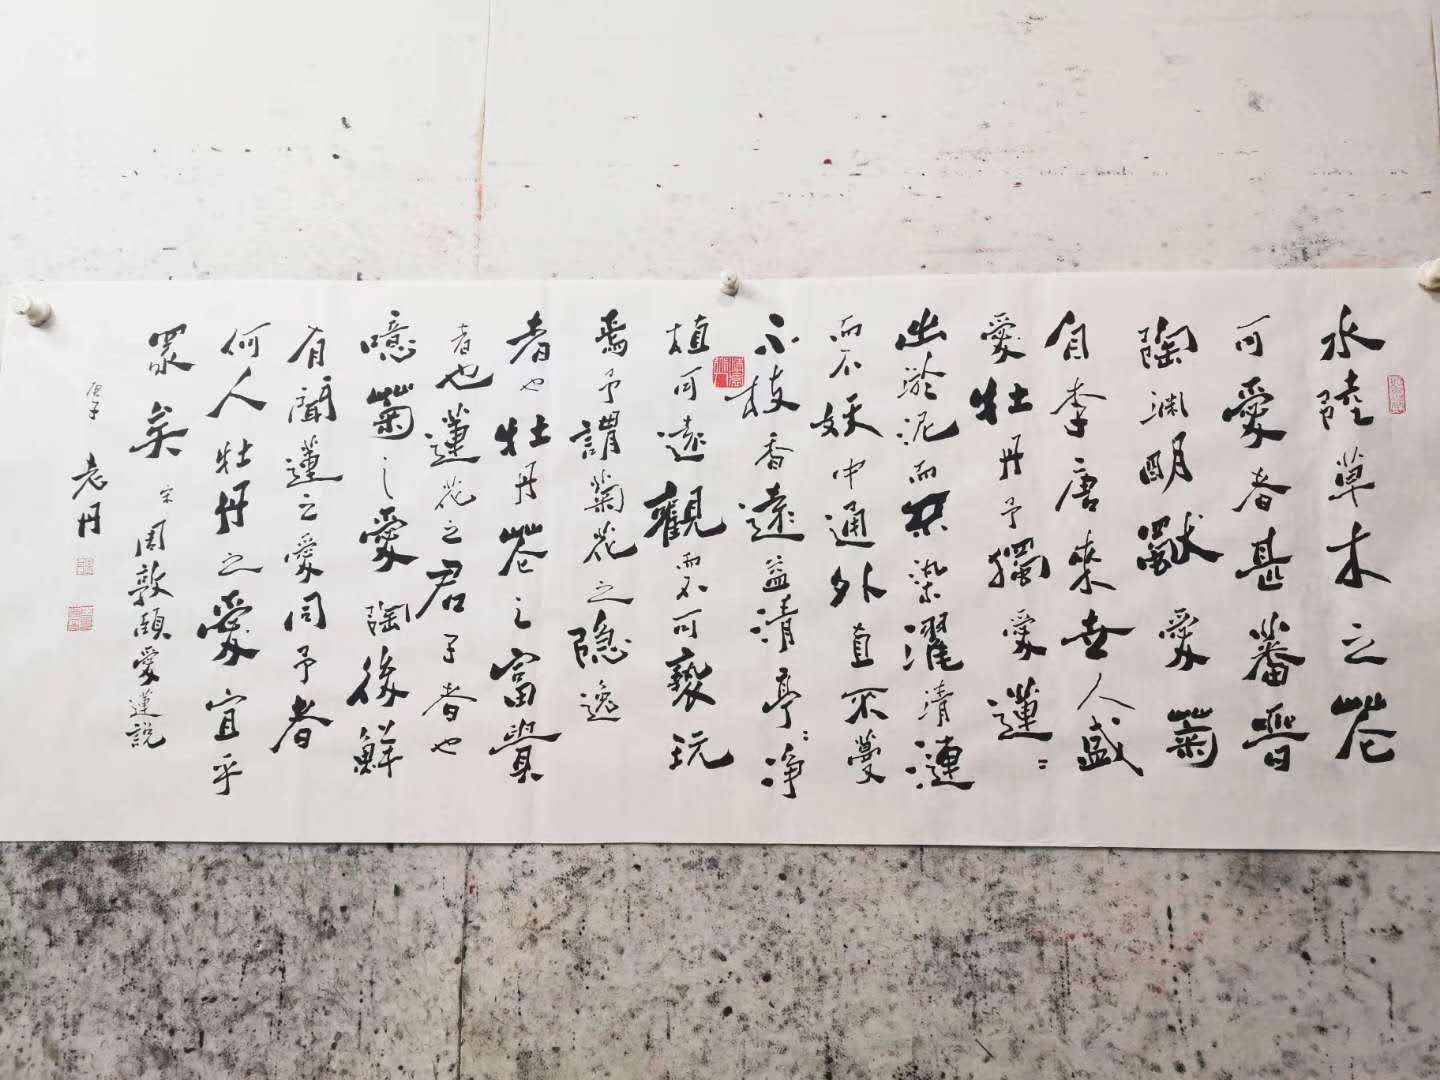 水陸草木之花
可愛者甚蕃晋
陶渊明獨愛菊
自李唐來世人盛
愛牡丹予獨愛蓮〻
出淤泥而不染濯清漣
而不妖中通外直不蔓
不枝香遠益清亭〻净
植可遠觀而不可褻玩
焉予謂菊花之隐逸
者也牡丹花之富貴
者也蓮花之君子者也
噫菊之愛陶後鮮
有聞蓮之愛同予者
何人牡丹之愛宜乎
眾矣 宋周敦頤愛蓮説
庚子 老丹